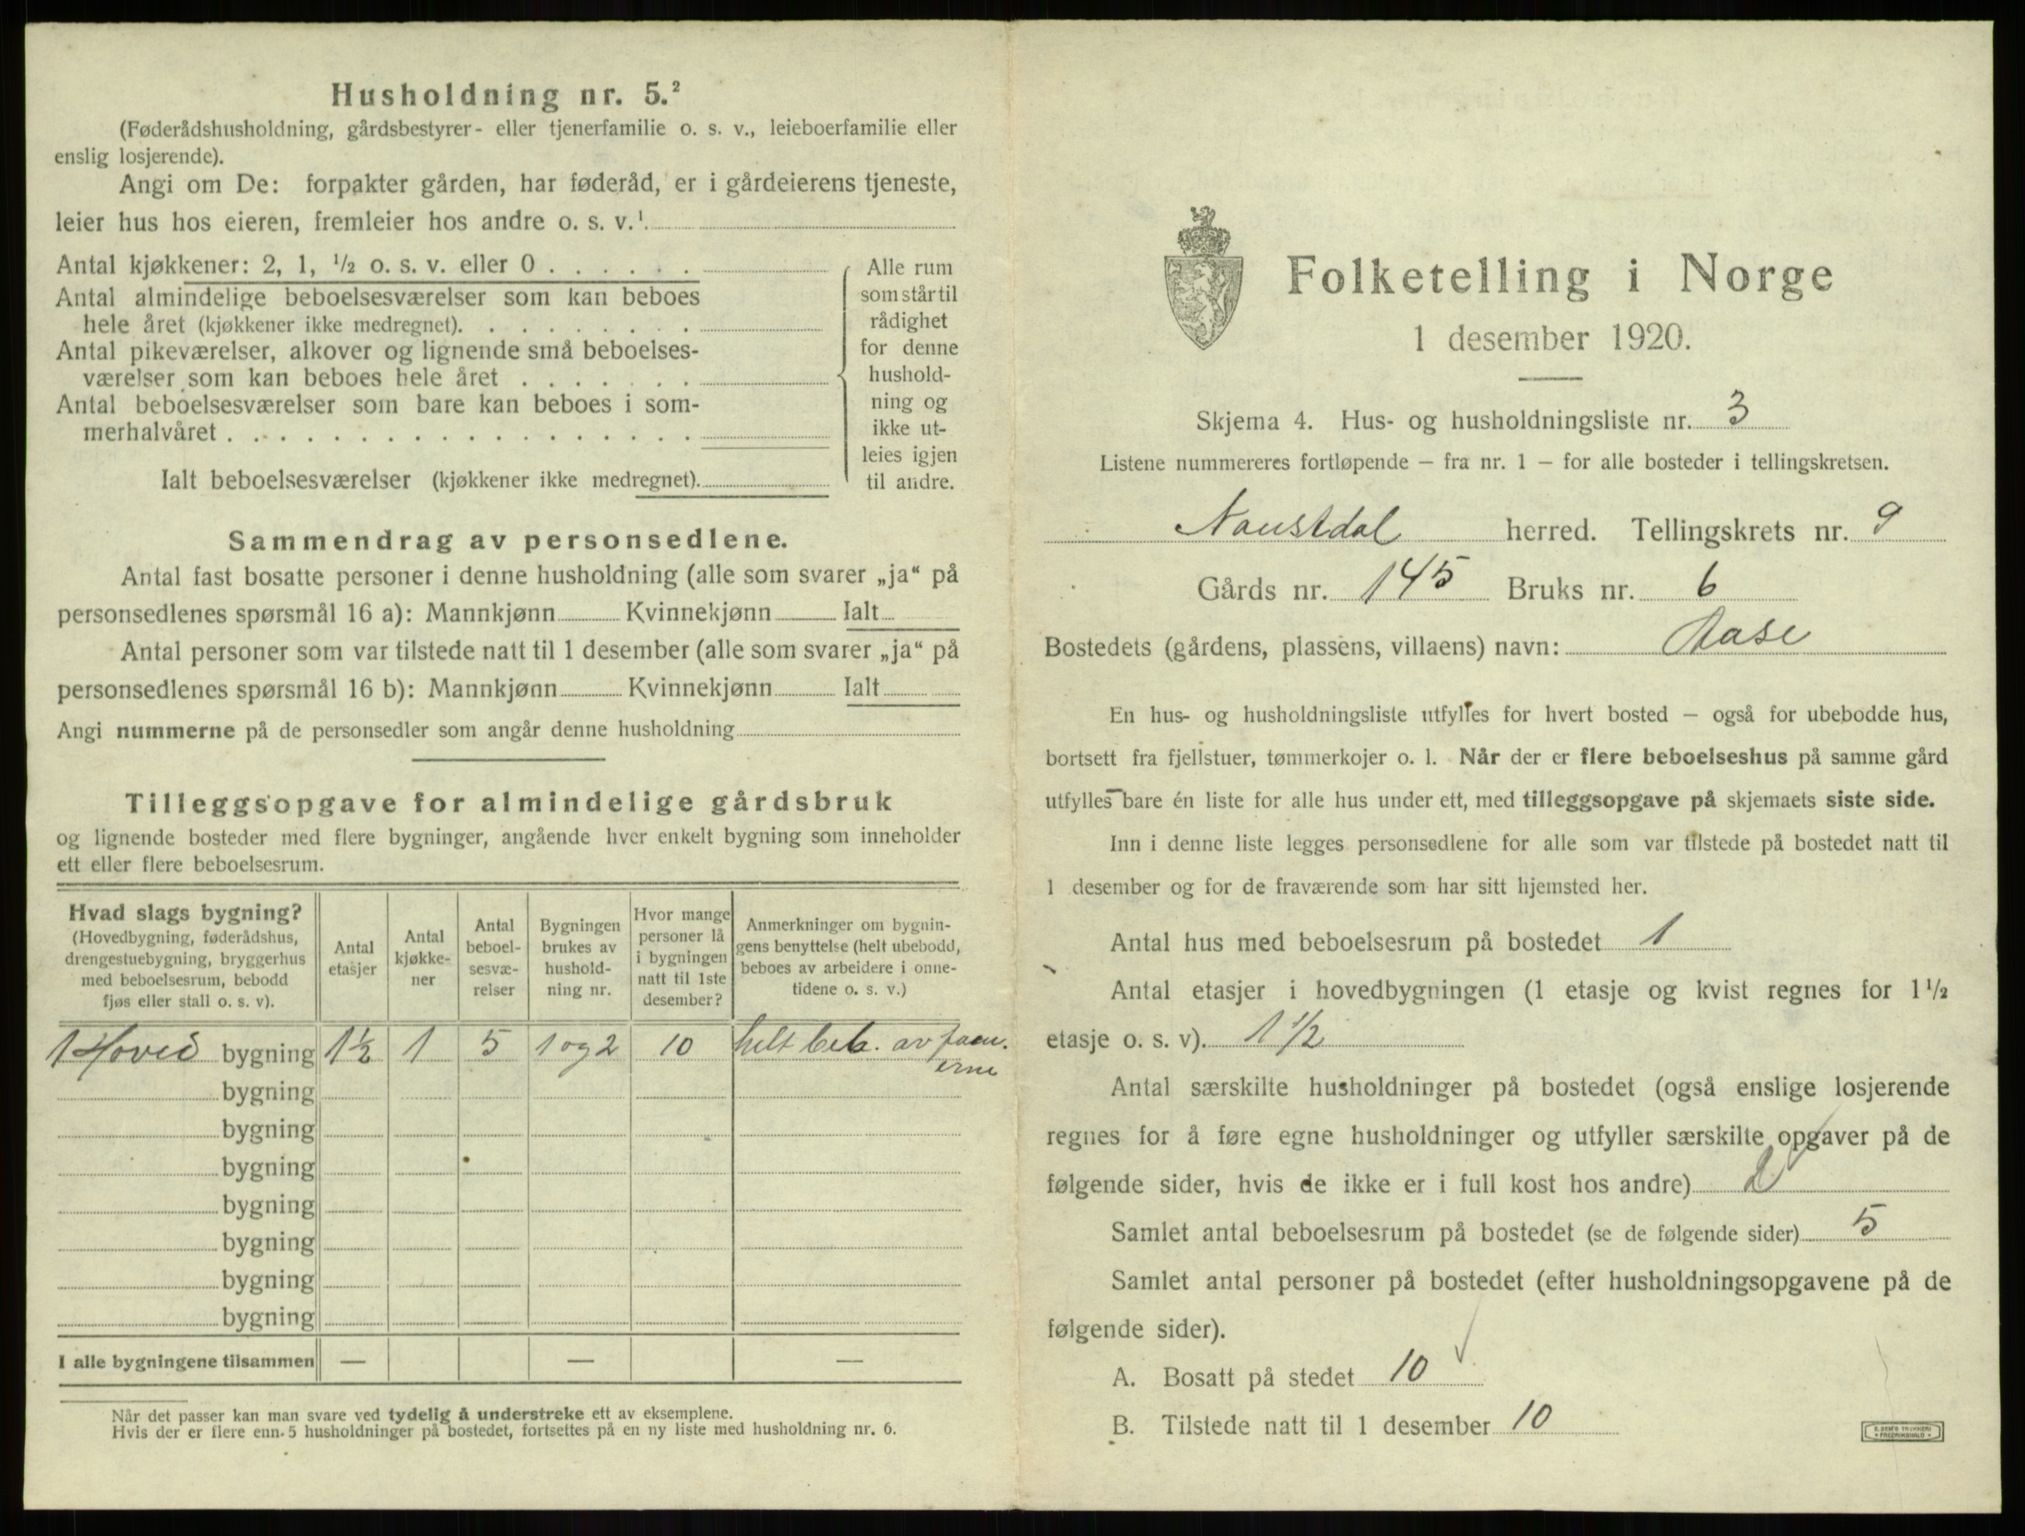 Husholdning nr. 5.²
(Føderådshusholdning, gårdsbestyrer- eller tjenerfamilie o. s. v., leieboerfamilie eller
enslig losjerende).
Angi om De: forpakter gården, har føderåd, er i gårdeierens tjeneste,
leier hus hos eieren, fremleier hos andre o. s. v.¹
Antal kjøkkener: 2, 1, ½ o. s. v. eller 0 . . . . . .
Antal almindelige beboelsesværelser som kan beboes
hele året (kjøkkener ikke medregnet). . . . . . . . .
Antal pikeværelser, alkover og lignende små beboelses-
værelser som kan beboes hele året . . . . . . .
Antal beboelsesværelser som bare kan beboes i som-
merhalvåret . . . . . . . . . . . . . . . . . .
Ialt beboelsesværelser (kjøkkener ikke medregnet).
Alle rum
som står til
rådighet
for denne
hushold-
ning og
ikke ut-
leies igjen
til andre.
Sammendrag av personsedlene.
Antal fast bosatte personer i denne husholdning (alle som svarer „ja“ på
personsedlenes spørsmål 16 a): Mannkjønn Kvinnekjønn Ialt
Antal personer som var tilstede natt til 1 desember (alle som svarer „ja“ på
personsedlenes spørsmål 16 b): Mannkjønn Kvinnekjønn Ialt
Angi nummerne på de personsedler som angår denne husholdning
Tilleggsopgave for almindelige gårdsbruk
og lignende bosteder med flere bygninger, angående hver enkelt bygning som inneholder
ett eller flere beboelsesrum.
Hvad slags bygning?
(Hovedbygning, føderådshus,
drengestuebygning, bryggerhus
med beboelsesrum, bebodd
fjøs eller stall o. s. v).
Antal
etasjer
Antal
kjøkke-
ner
Antal
beboel-
sesvæ-
relser
Bygningen
brukes av
hushold-
ning nr.
Hvor mange
personer lå
i bygningen
natt til 1ste
desember?
Anmerkninger om bygnin-
gens benyttelse (helt ubebodd,
beboes av arbeidere i onne-
tidene o. s. v.)
1 Hoved bygning 1½ 1 5 1 og 2 10 helt beb. av
bygning
bygning
bygning
bygning
bygning
bygning
bygning
I alle bygningene tilsammen — — —
Når det passer kan man svare ved tydelig å understreke ett av eksemplene.
Hvis der er flere enn 5 husholdninger på bostedet, fortsettes på en ny liste med husholdning nr. 6.
Folketelling i Norge
1 desember 1920.
Skjema 4. Hus- og husholdningsliste nr. 3
Listene nummereres fortløpende – fra nr. 1 – for alle bosteder i tellingskretsen.
Naustdal herred. Tellingskrets nr. 9
Gårds nr. 145 Bruks nr. 6
Bostedets (gårdens, plassens, villaens) navn: Aase
En hus- og husholdningsliste utfylles for hvert bosted – også for ubebodde hus,
bortsett fra fjellstuer, tømmerkojer o. l. Når der er flere beboelseshus på samme gård
utfylles bare én liste for alle hus under ett, med tilleggsopgave på skjemaets siste side.
Inn i denne liste legges personsedlene for alle som var tilstede på bostedet natt til
1 desember og for de fraværende som har sitt hjemsted her.
Antal hus med beboelsesrum på bostedet 1
Antal etasjer i hovedbygningen (1 etasje og kvist regnes for 1½
etasje o. s. v). 1½
Antal særskilte husholdninger på bostedet (også enslige losjerende
regnes for å føre egne husholdninger og utfyller særskilte opgaver på de
følgende sider, hvis de ikke er i full kost hos andre) 2
Samlet antal beboelsesrum på bostedet (se de følgende sider) 5
Samlet antal personer på bostedet (efter husholdningsopgavene på de
følgende sider).
A. Bosatt på stedet 10
B. Tilstede natt til 1 desember 10